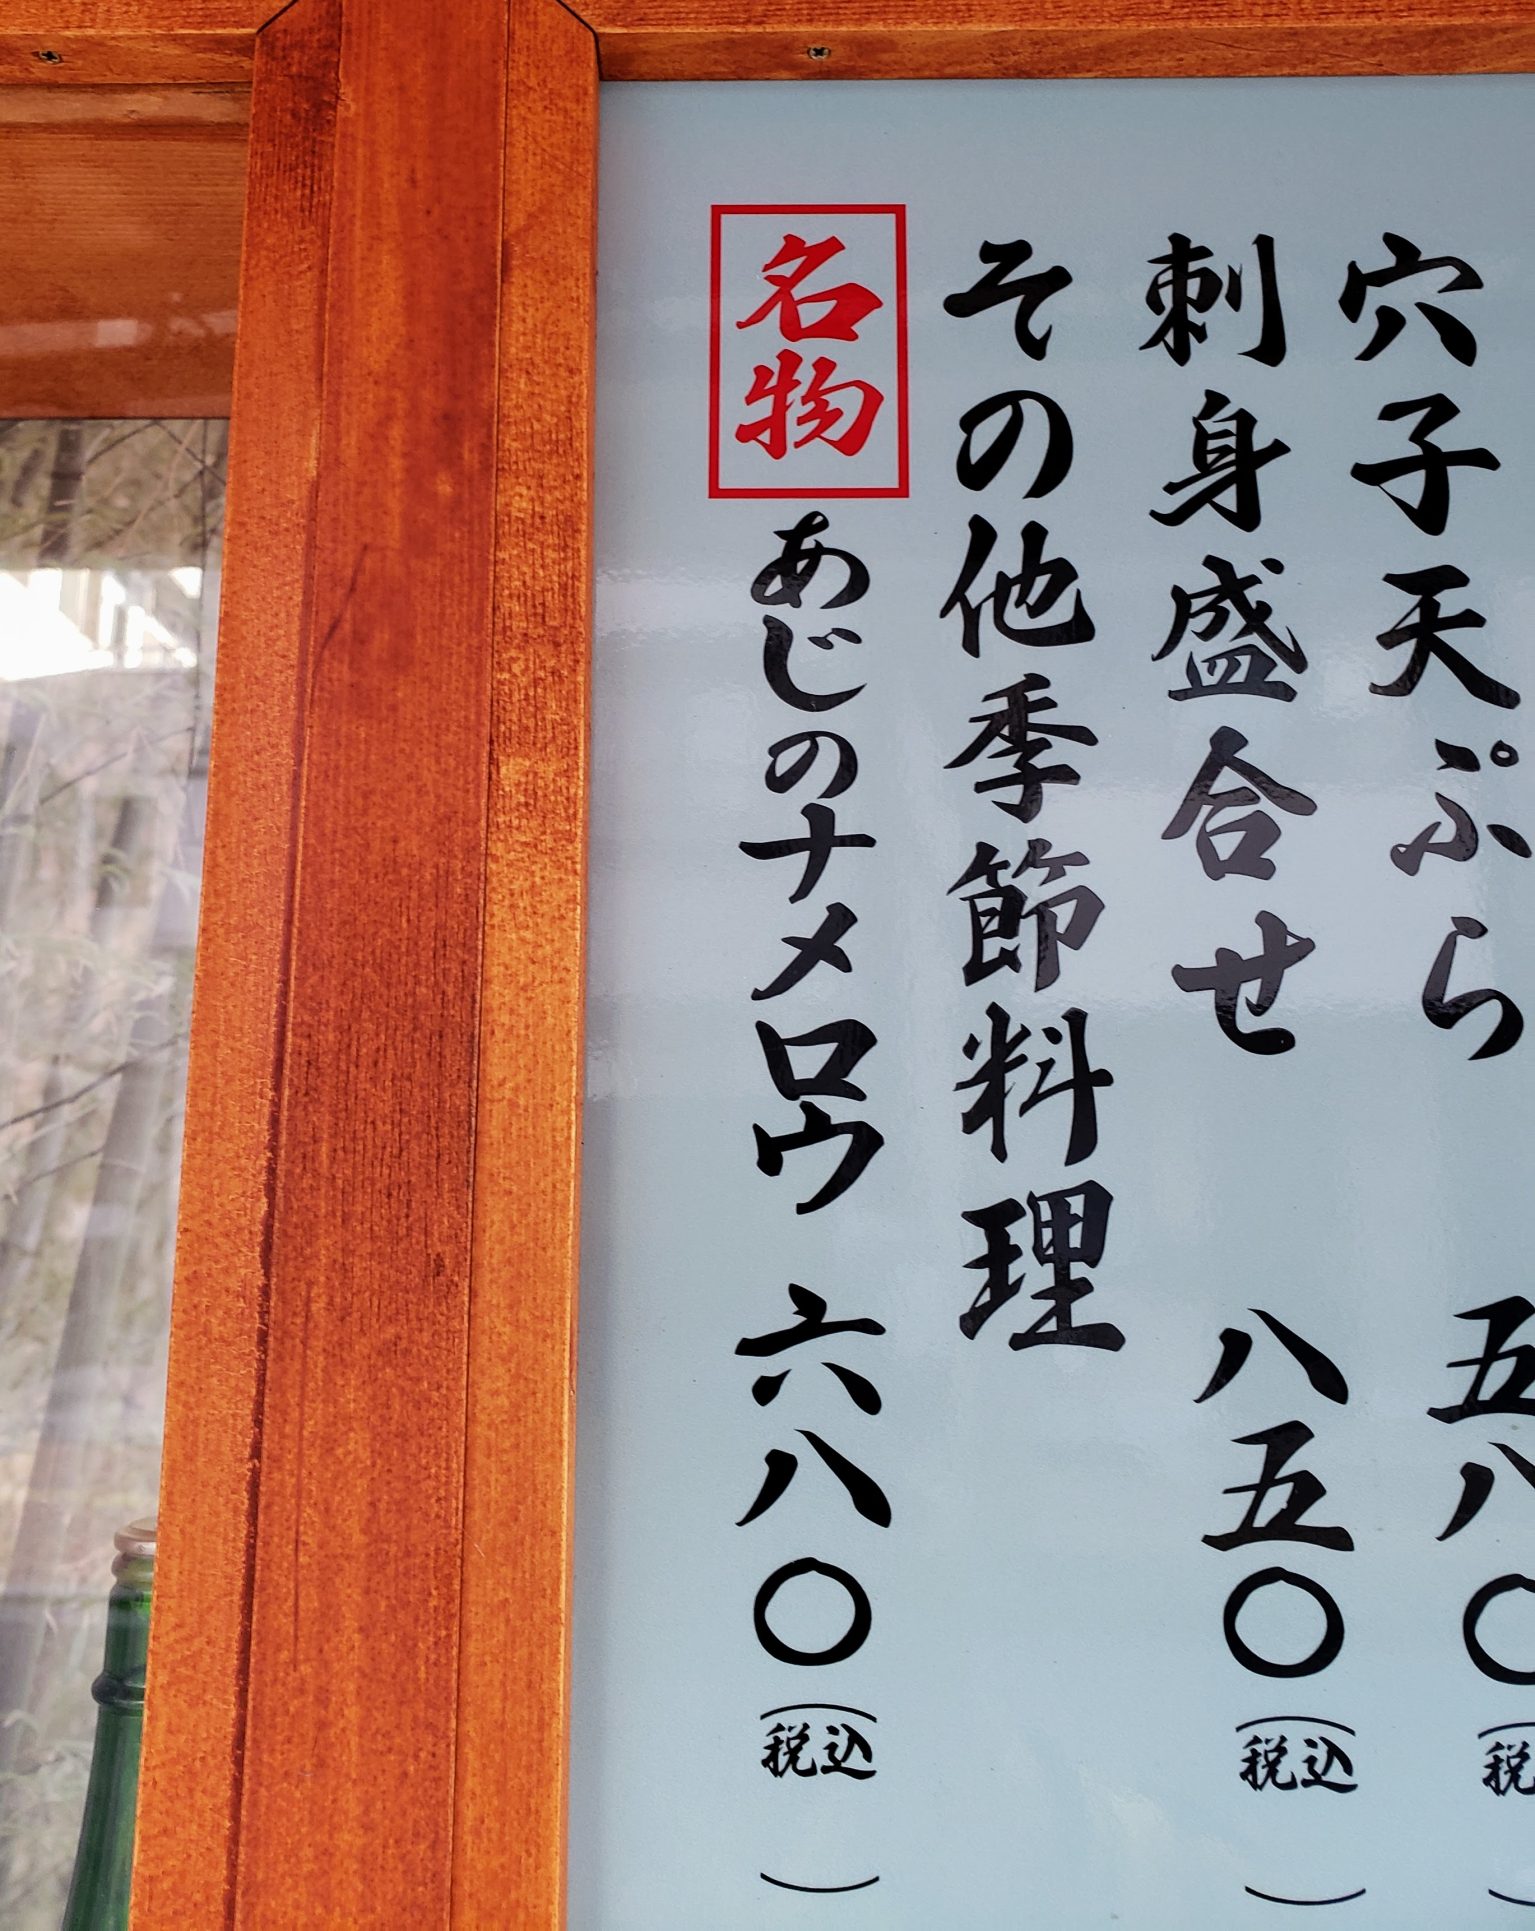 穴子天ぷら 五八〇(税
刺身盛合せ 八五〇(税込)
その他季節料理
名物 あじのナメロウ 六八〇(税込)